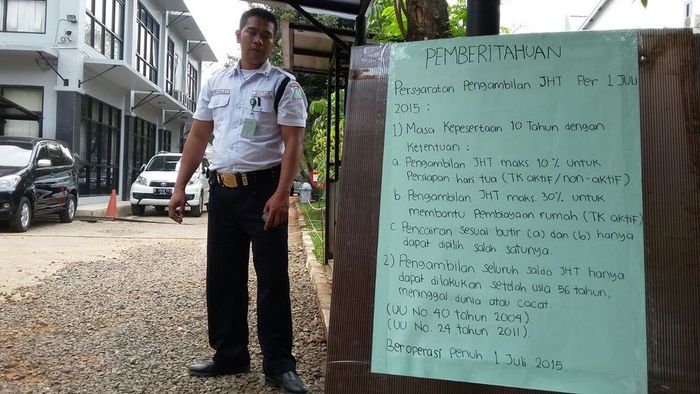 PEMBERITAHUAN
Persyaratan Pengambilan JHT Per 1 JULI
2015 :
1) Masa Kepesertaan 10 Tahun dengan
Ketentuan :
a. Pengambilan JHT maks. 10 % untuk
Persiapan hari tua (TK aktif/non-aktif).
b. Pengambilan JHT maks. 30% untuk
membantu Pembiayaan rumah (TK aktif)
c. Pencairan sesuai butir (a) dan (b) hanya
dapat dipilih salah satunya.
2) Pengambilan seluruh saldo JHT hanya
dapat dilakukan setelah usia 56 tahun,
meninggal dunia atau cacat.
(UU No. 40 tahun 2004)
(UU No. 24 tahun 2011).
Beroperasi Penuh 1 Juli 2015.